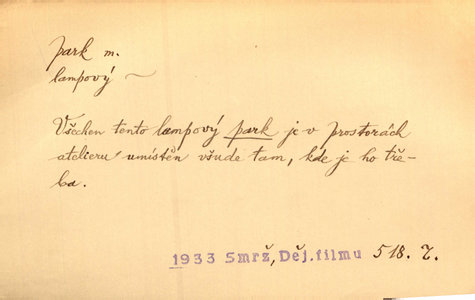 park m.
lampový ~
Všechen tento lampový park je v prostorách
atelieru umístěn všude tam, kde je ho tře-
ba.
1933 Smrž, Děj. filmu 518. 7.